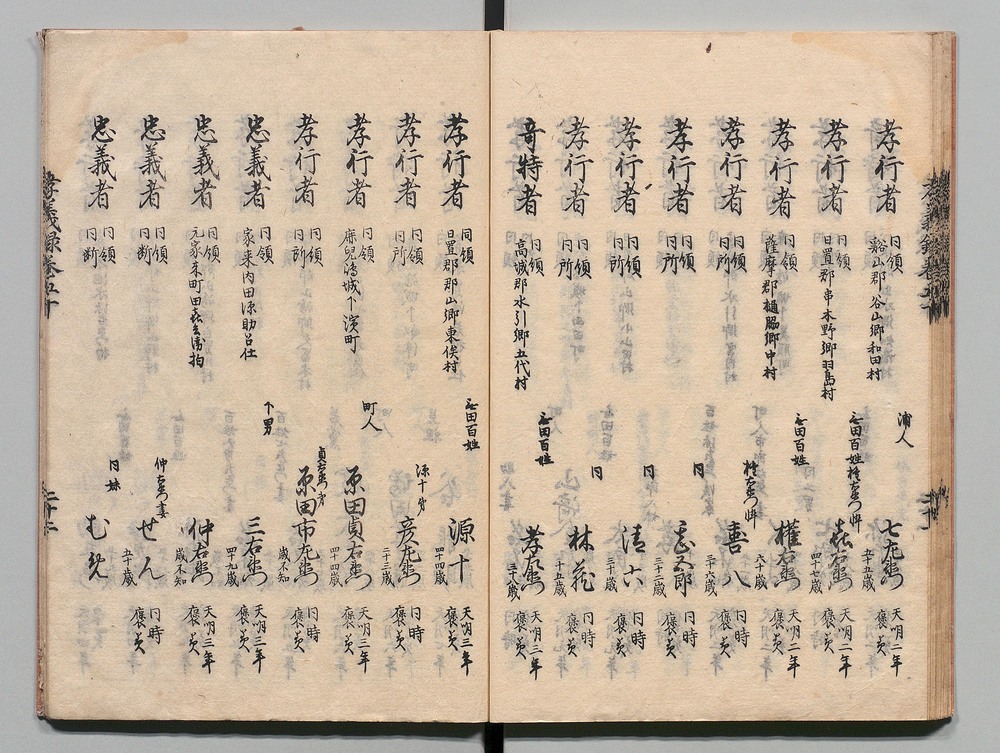 孝行者 同領 谿山郡谷山郷和田村 浦人 七左衛門 五十五歳 天明二年褒美
孝行者 同領 日置郡串木野郷羽島村 無田百姓権右衛門忰 喜右衛門 四十七歳 天明二年褒美
孝行者 同領 薩摩郡樋脇郷中村 無田百姓 権右衛門 六十歳 天明二年褒美
孝行者 同領同所 権右衛門忰 善八 三十六歳 同時褒美
孝行者 同領同所 同 五郎 三十二歳 同時褒美
孝行者 同領同所 同 清六 三十歳 同時褒美
孝行者 同領同所 同 林蔵 十五歳 同時褒美
奇特者 同領 高城郡水引郷五代村 無田百姓 孝右衛門 三十八歳 天明三年褒美
孝行者 同領 日置郡郡山郷東俣村 無田百姓 源十 四十四歳 天明三年褒美
孝行者 同領同所 源十弟 彦左衛門 二十三歳 同時褒美
孝行者 同領 鹿児島城下濱町 町人 原田貞右衛門 四十四歳 天明三年褒美
孝行者 同領同所 貞右衛門弟 原田市左衛門 歳不知 同時褒美
忠義者 同領 家来内田源助召仕 下男 三右衛門 四十九歳 天明三年褒美
忠義者 同領 元家来町田喜兵衛抱 仲右衛門 歳不知 天明三年褒美
忠義者 同領同断 仲右衛門妻 せん 五十歳 同時褒美
忠義者 同領同断 同妹 むめ
孝義録巻五十